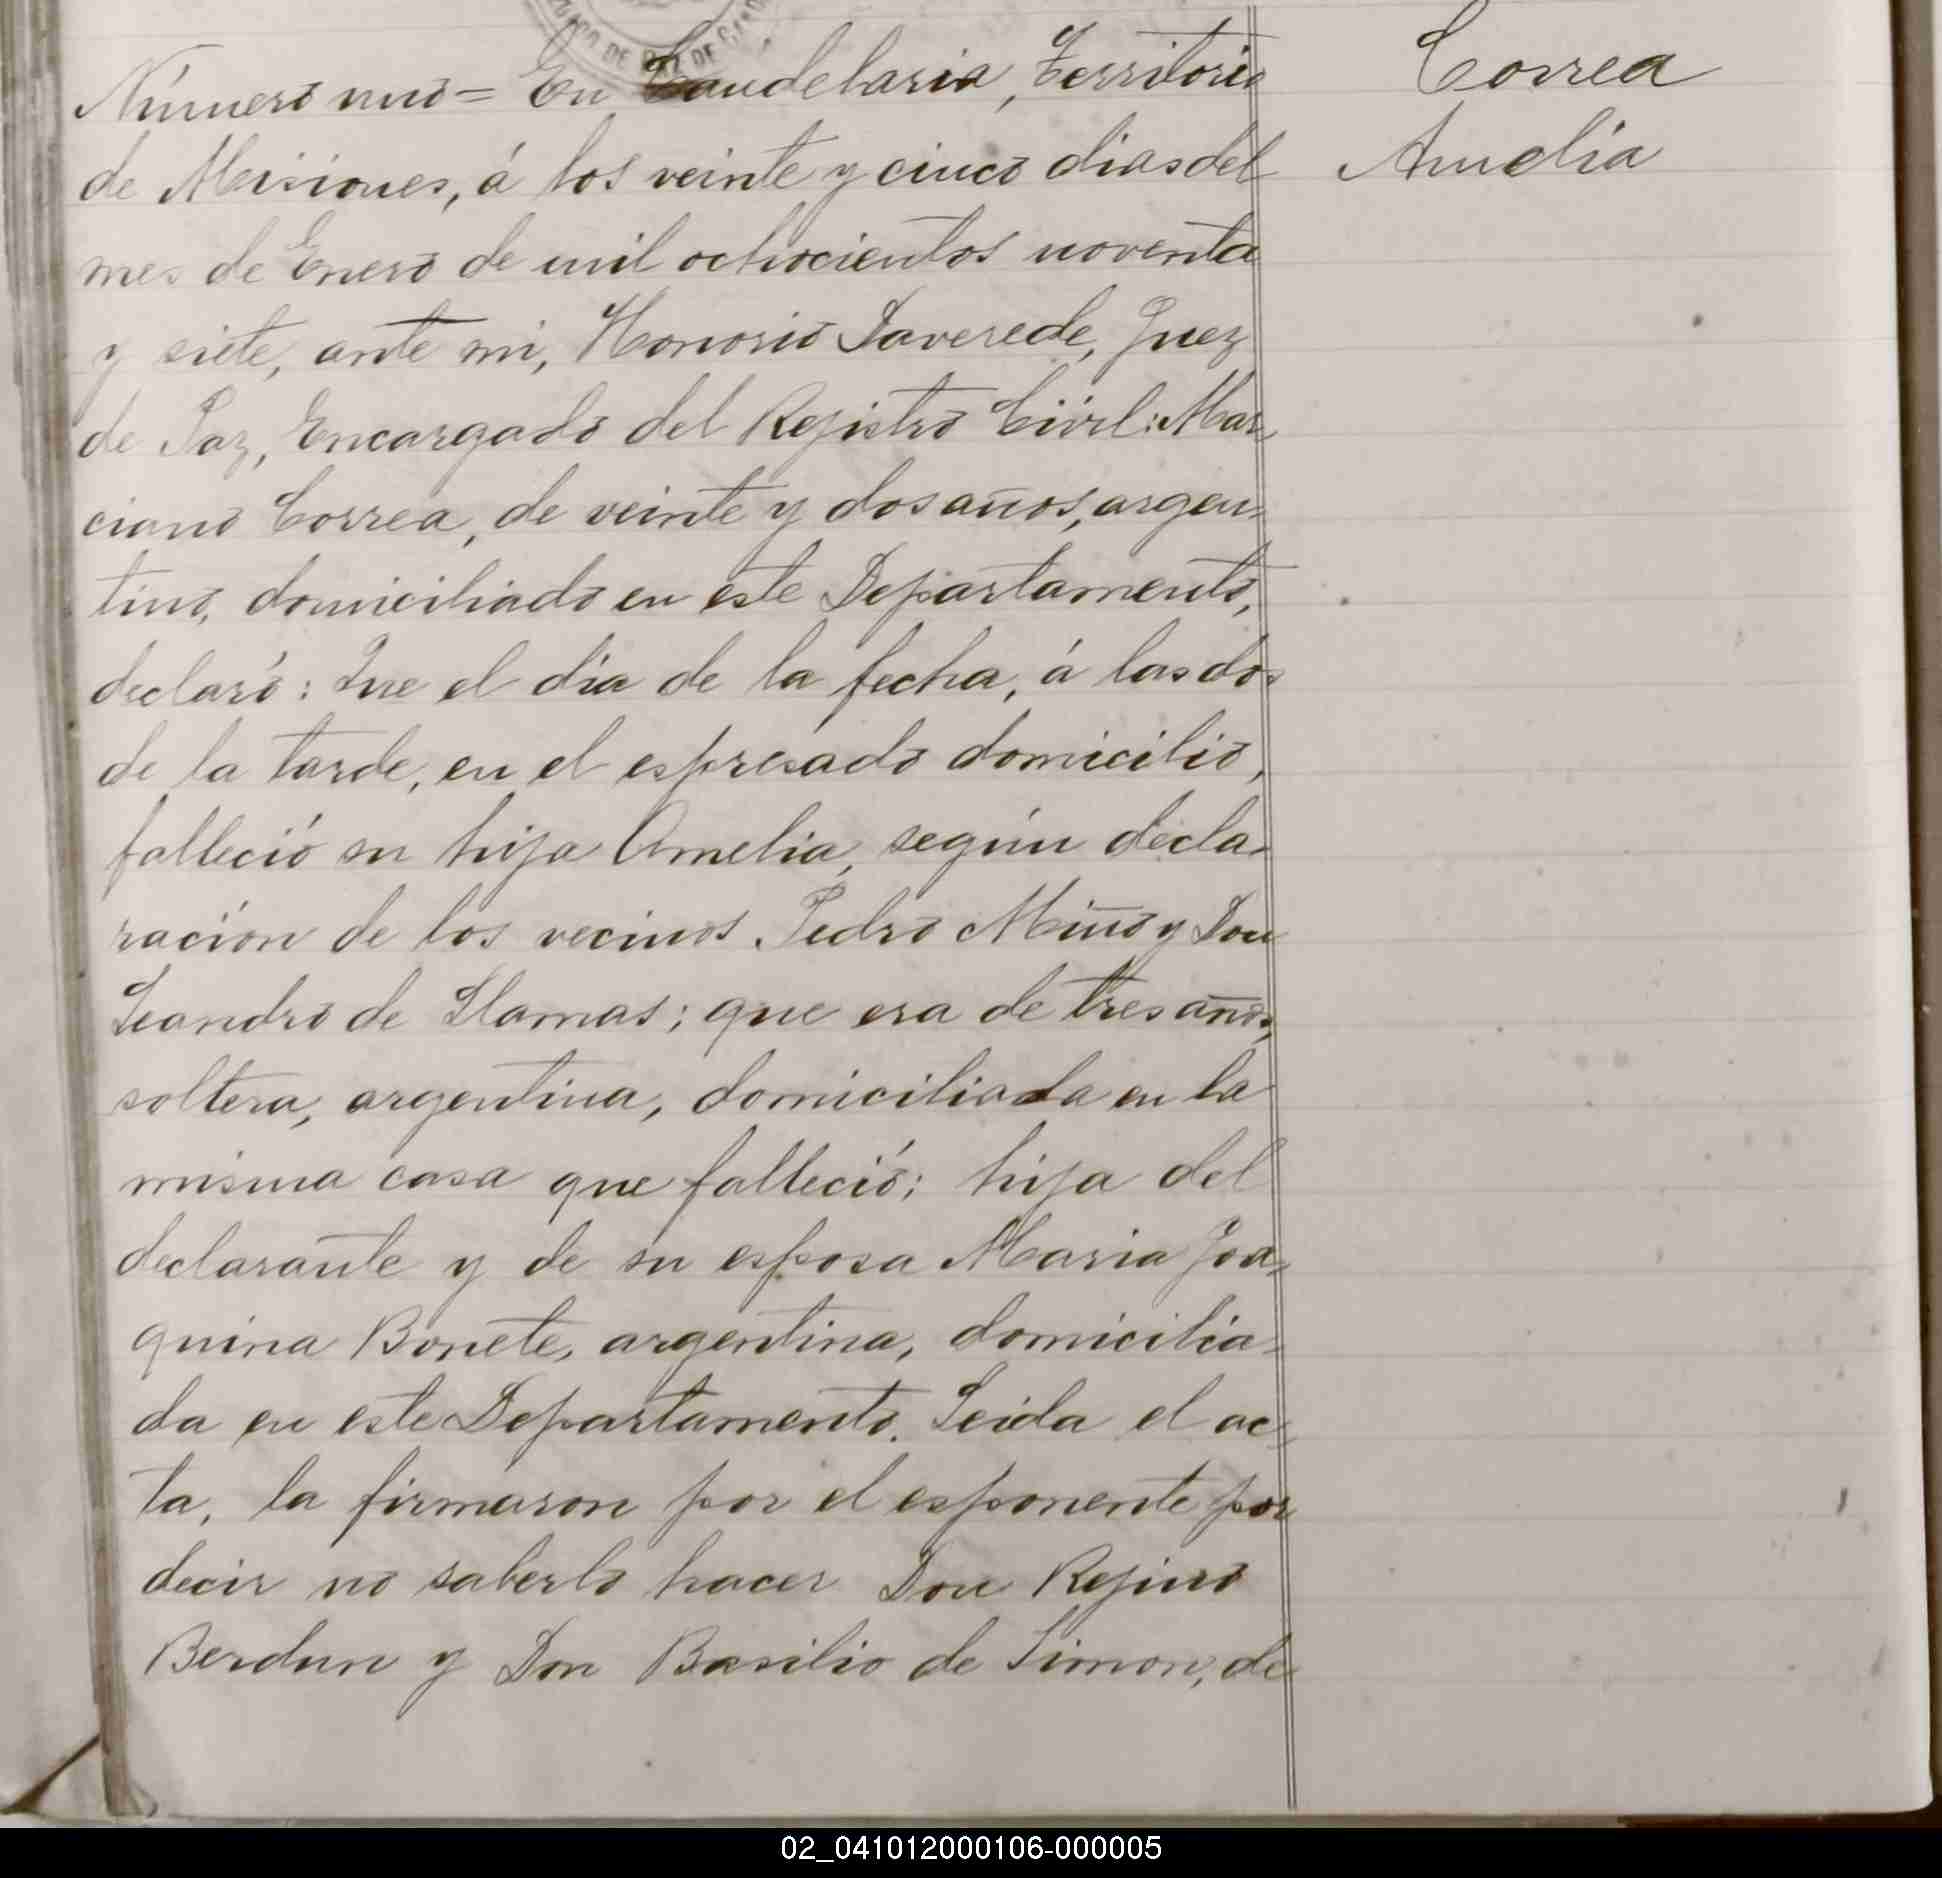 Correa
Amelia
Número uno = En Candelaria, Territorio
de Misiones, á los veinte y cinco dias del
mes de Enero de mil ochocientos noventa
y siete, ante mi, Honorio Taverede, Juez
de Paz, Encargado del Rejistro Civil: Mar-
ciano Correa, de veinte y dos años, argen-
tino, domiciliado en este Departamento,
declaró: Que el dia de la fecha, á las dos
de la tarde, en el espresado domicilio,
falleció su hija Amelia, según decla-
ración de los vecinos Pedro Miño y Don
Leandro de Llamas; que era de tres años,
soltera, argentina, domiciliada en la
misma casa que falleció; hija del
declarante y de su esposa Maria Joa-
quina Bonete, argentina, domicilia-
da en este Departamento. Leida el ac-
ta, la firmaron por el esponente por
decir no saberlo hacer Don Rejino
Berdun y Don Basilio de Simon, de
02_041012000106-000005